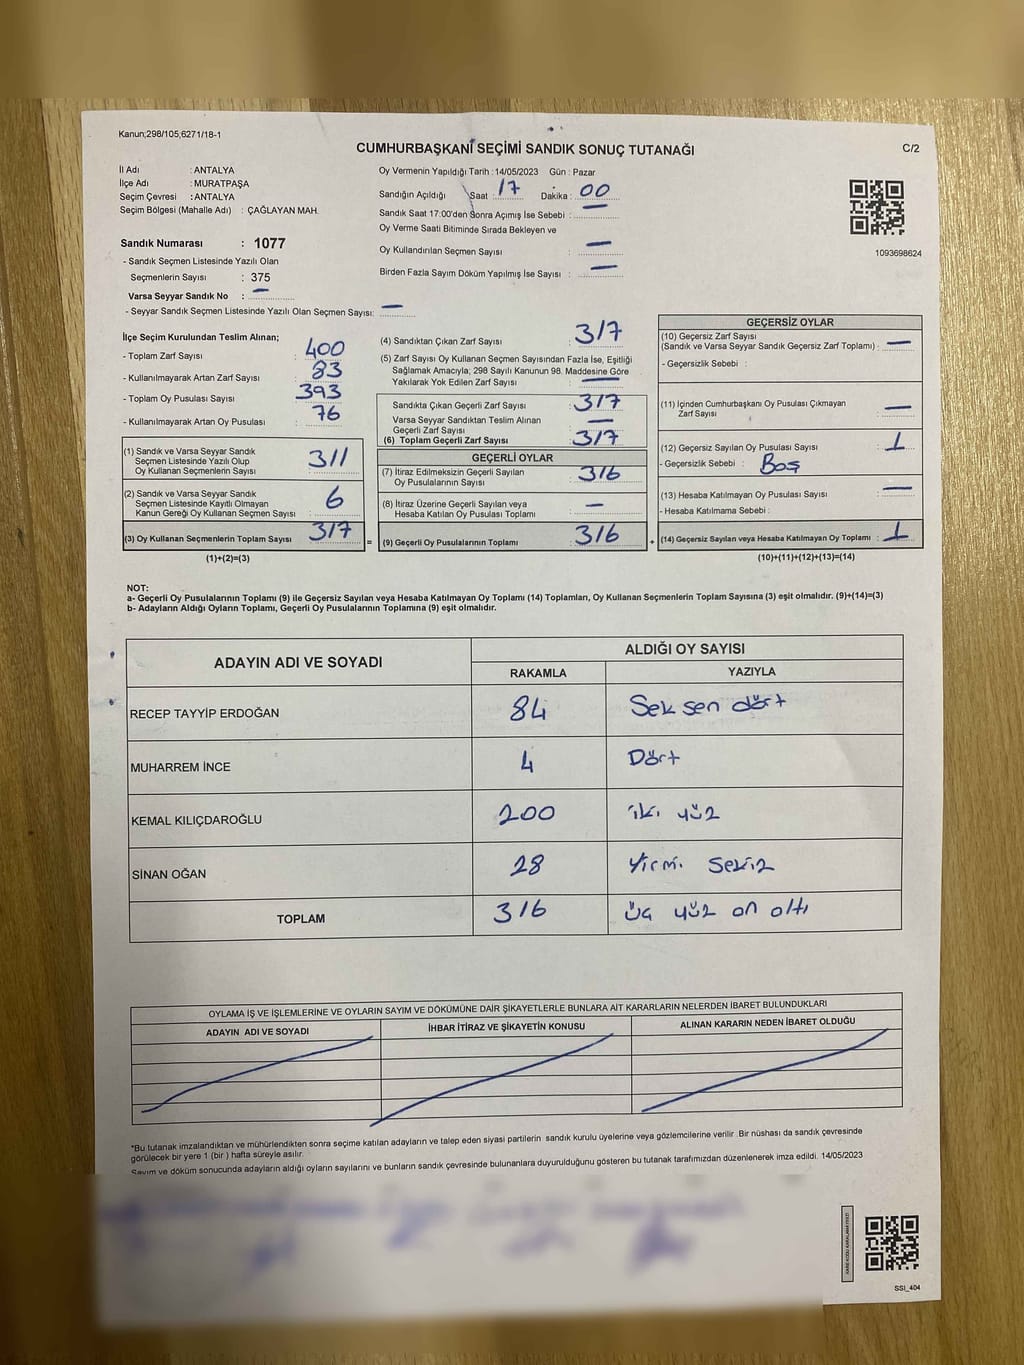 Kanun;298/105;6271/18-1
CUMHURBAŞKANİ SEÇİMİ SANDIK SONUÇ TUTANAĞI
C/2
İl Adı : ANTALYA
İlçe Adı : MURATPAŞA
Seçim Çevresi : ANTALYA
Seçim Bölgesi (Mahalle Adı) : ÇAĞLAYAN MAH.
Oy Vermenin Yapıldığı Tarih : 14/05/2023 Gün : Pazar
Sandığın Açıldığı Saat : 17 Dakika : 00
Sandık Saat 17:00'den Sonra Açımış İse Sebebi : —
Oy Verme Saati Bitiminde Sırada Bekleyen ve
Oy Kullandırılan Seçmen Sayısı : —
Birden Fazla Sayım Döküm Yapılmış İse Sayısı : —
1093698624
Sandık Numarası : 1077
- Sandık Seçmen Listesinde Yazılı Olan
Seçmenlerin Sayısı : 375
Varsa Seyyar Sandık No : —
- Seyyar Sandık Seçmen Listesinde Yazılı Olan Seçmen Sayısı: —
İlçe Seçim Kurulundan Teslim Alınan;
- Toplam Zarf Sayısı : 400
- Kullanılmayarak Artan Zarf Sayısı : 83
- Toplam Oy Pusulası Sayısı : 393
- Kullanılmayarak Artan Oy Pusulası : 76
(1) Sandık ve Varsa Seyyar Sandık
Seçmen Listesinde Yazılı Olup
Oy Kullanan Seçmenlerin Sayısı : 311
(2) Sandık ve Varsa Seyyar Sandık
Seçmen Listesinde Kayıtlı Olmayan
Kanun Gereği Oy Kullanan Seçmen Sayısı : 6
(3) Oy Kullanan Seçmenlerin Toplam Sayısı : 317
(1)+(2)=(3)
(4) Sandıktan Çıkan Zarf Sayısı : 317
(5) Zarf Sayısı Oy Kullanan Seçmen Sayısından Fazla İse, Eşitliği
Sağlamak Amacıyla; 298 Sayılı Kanunun 98. Maddesine Göre
Yakılarak Yok Edilen Zarf Sayısı : —
Sandıkta Çıkan Geçerli Zarf Sayısı : 317
Varsa Seyyar Sandıktan Teslim Alınan
Geçerli Zarf Sayısı : —
(6) Toplam Geçerli Zarf Sayısı : 317
GEÇERLİ OYLAR
(7) İtiraz Edilmeksizin Geçerli Sayılan
Oy Pusulalarının Sayısı : 316
(8) İtiraz Üzerine Geçerli Sayılan veya
Hesaba Katılan Oy Pusulası Toplamı : —
= (9) Geçerli Oy Pusulalarının Toplamı : 316
GEÇERSİZ OYLAR
(10) Geçersiz Zarf Sayısı
(Sandık ve Varsa Seyyar Sandık Geçersiz Zarf Toplamı) : —
- Geçersizlik Sebebi :
(11) İçinden Cumhurbaşkanı Oy Pusulası Çıkmayan
Zarf Sayısı : —
(12) Geçersiz Sayılan Oy Pusulası Sayısı : 1
- Geçersizlik Sebebi : Boş
(13) Hesaba Katılmayan Oy Pusulası Sayısı : —
- Hesaba Katılmama Sebebi :
+ (14) Geçersiz Sayılan veya Hesaba Katılmayan Oy Toplamı : 1
(10)+(11)+(12)+(13)=(14)
NOT:
a- Geçerli Oy Pusulalarının Toplamı (9) ile Geçersiz Sayılan veya Hesaba Katılmayan Oy Toplamı (14) Toplamları, Oy Kullanan Seçmenlerin Toplam Sayısına (3) eşit olmalıdır. (9)+(14)=(3)
b- Adayların Aldığı Oyların Toplamı, Geçerli Oy Pusulalarının Toplamına (9) eşit olmalıdır.
ADAYIN ADI VE SOYADI ALDIĞI OY SAYISI
RAKAMLA YAZIYLA
RECEP TAYYİP ERDOĞAN 84 Seksen dört
MUHARREM İNCE 4 Dört
KEMAL KILIÇDAROĞLU 200 iki yüz
SİNAN OĞAN 28 Yirmi sekiz
TOPLAM 316 üç yüz on altı
OYLAMA İŞ VE İŞLEMLERİNE VE OYLARIN SAYIM VE DÖKÜMÜNE DAİR ŞİKAYETLERLE BUNLARA AİT KARARLARIN NELERDEN İBARET BULUNDUKLARI
ADAYIN ADI VE SOYADI İHBAR İTİRAZ VE ŞİKAYETİN KONUSU ALINAN KARARIN NEDEN İBARET OLDUĞU
*Bu tutanak imzalandıktan ve mühürlendikten sonra seçime katılan adayların ve talep eden siyasi partilerin sandık kurulu üyelerine veya gözlemcilerine verilir. Bir nüshası da sandık çevresinde
görülecek bir yere 1 (bir ) hafta süreyle asılır.
Sayım ve döküm sonucunda adayların aldığı oyların sayılarını ve bunların sandık çevresinde bulunanlara duyurulduğunu gösteren bu tutanak tarafımızdan düzenlenerek imza edildi. 14/05/2023
SSI_404